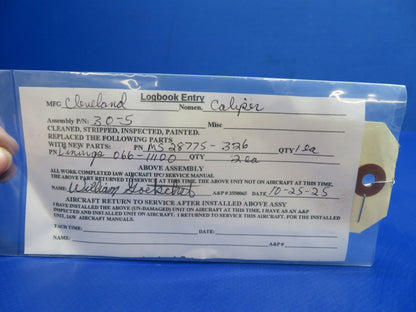 Logbook Entry
MFG Cleveland Nomen. Caliper
Assembly P/N: 30-5 Misc
CLEANED, STRIPPED, INSPECTED, PAINTED.
REPLACED THE FOLLOWING PARTS
WITH NEW PARTS: PN MS 28775-326 QTY 1 ea
PN Linings 066-1100 QTY 2 ea
ABOVE ASSEMBLY
ALL WORK COMPLETED IAW AIRCRAFT IPC/ SERVICE MANUAL
THE ABOVE PART RETURNED TO SERVICE AT THIS TIME, THE ABOVE UNIT NOT ON AIRCRAFT AT THIS TIME,
NAME: William A&P # DATE: 10-25-25
AIRCRAFT RETURN TO SERVICE AFTER INSTALLED ABOVE ASSY
I HAVE INSTALLED THE ABOVE (UN-DAMAGED) UNIT ON AIRCRAFT AT THIS TIME, I HAVE AS AN A&P
INSPECTED AND INSTALLED UNIT ON AIRCRAFT. I RETURNED TO SERVICE THIS AIRCRAFT. FOR THE INSTALLED
UNIT, IAW AIRCRAFT MANUALS.
TACH TIME: DATE:
NAME: A&P #